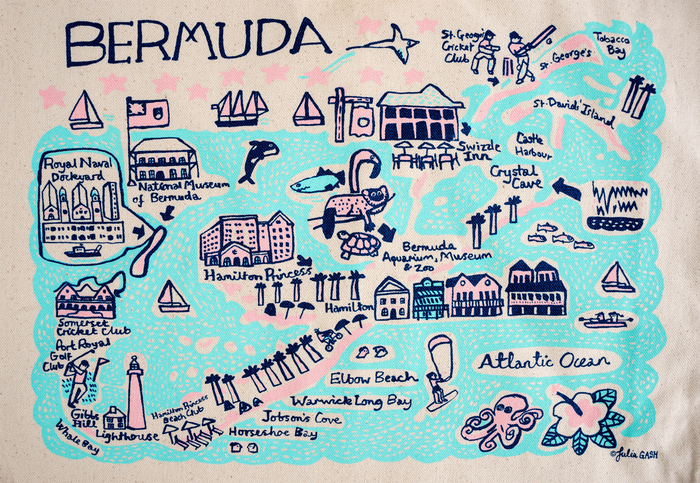 BERMUDA
St. George's
Cricket
Club
St. George's
Tobacco
Bay
St. David's Island
Castle
Harbour
Swizzle
Inn
Crystal
Cave
Royal Naval
Dockyard
National Museum
of Bermuda
Bermuda
Aquarium, Museum
& Zoo
Hamilton Princess
Hamilton
Somerset
Cricket Club
Port Royal
Golf
Club
Gibbs
Hill
Lighthouse
Whale Bay
Hamilton Princess
Beach Club
Elbow Beach
Warwick Long Bay
Jobson's Cove
Horseshoe Bay
Atlantic Ocean
©Julia GASH